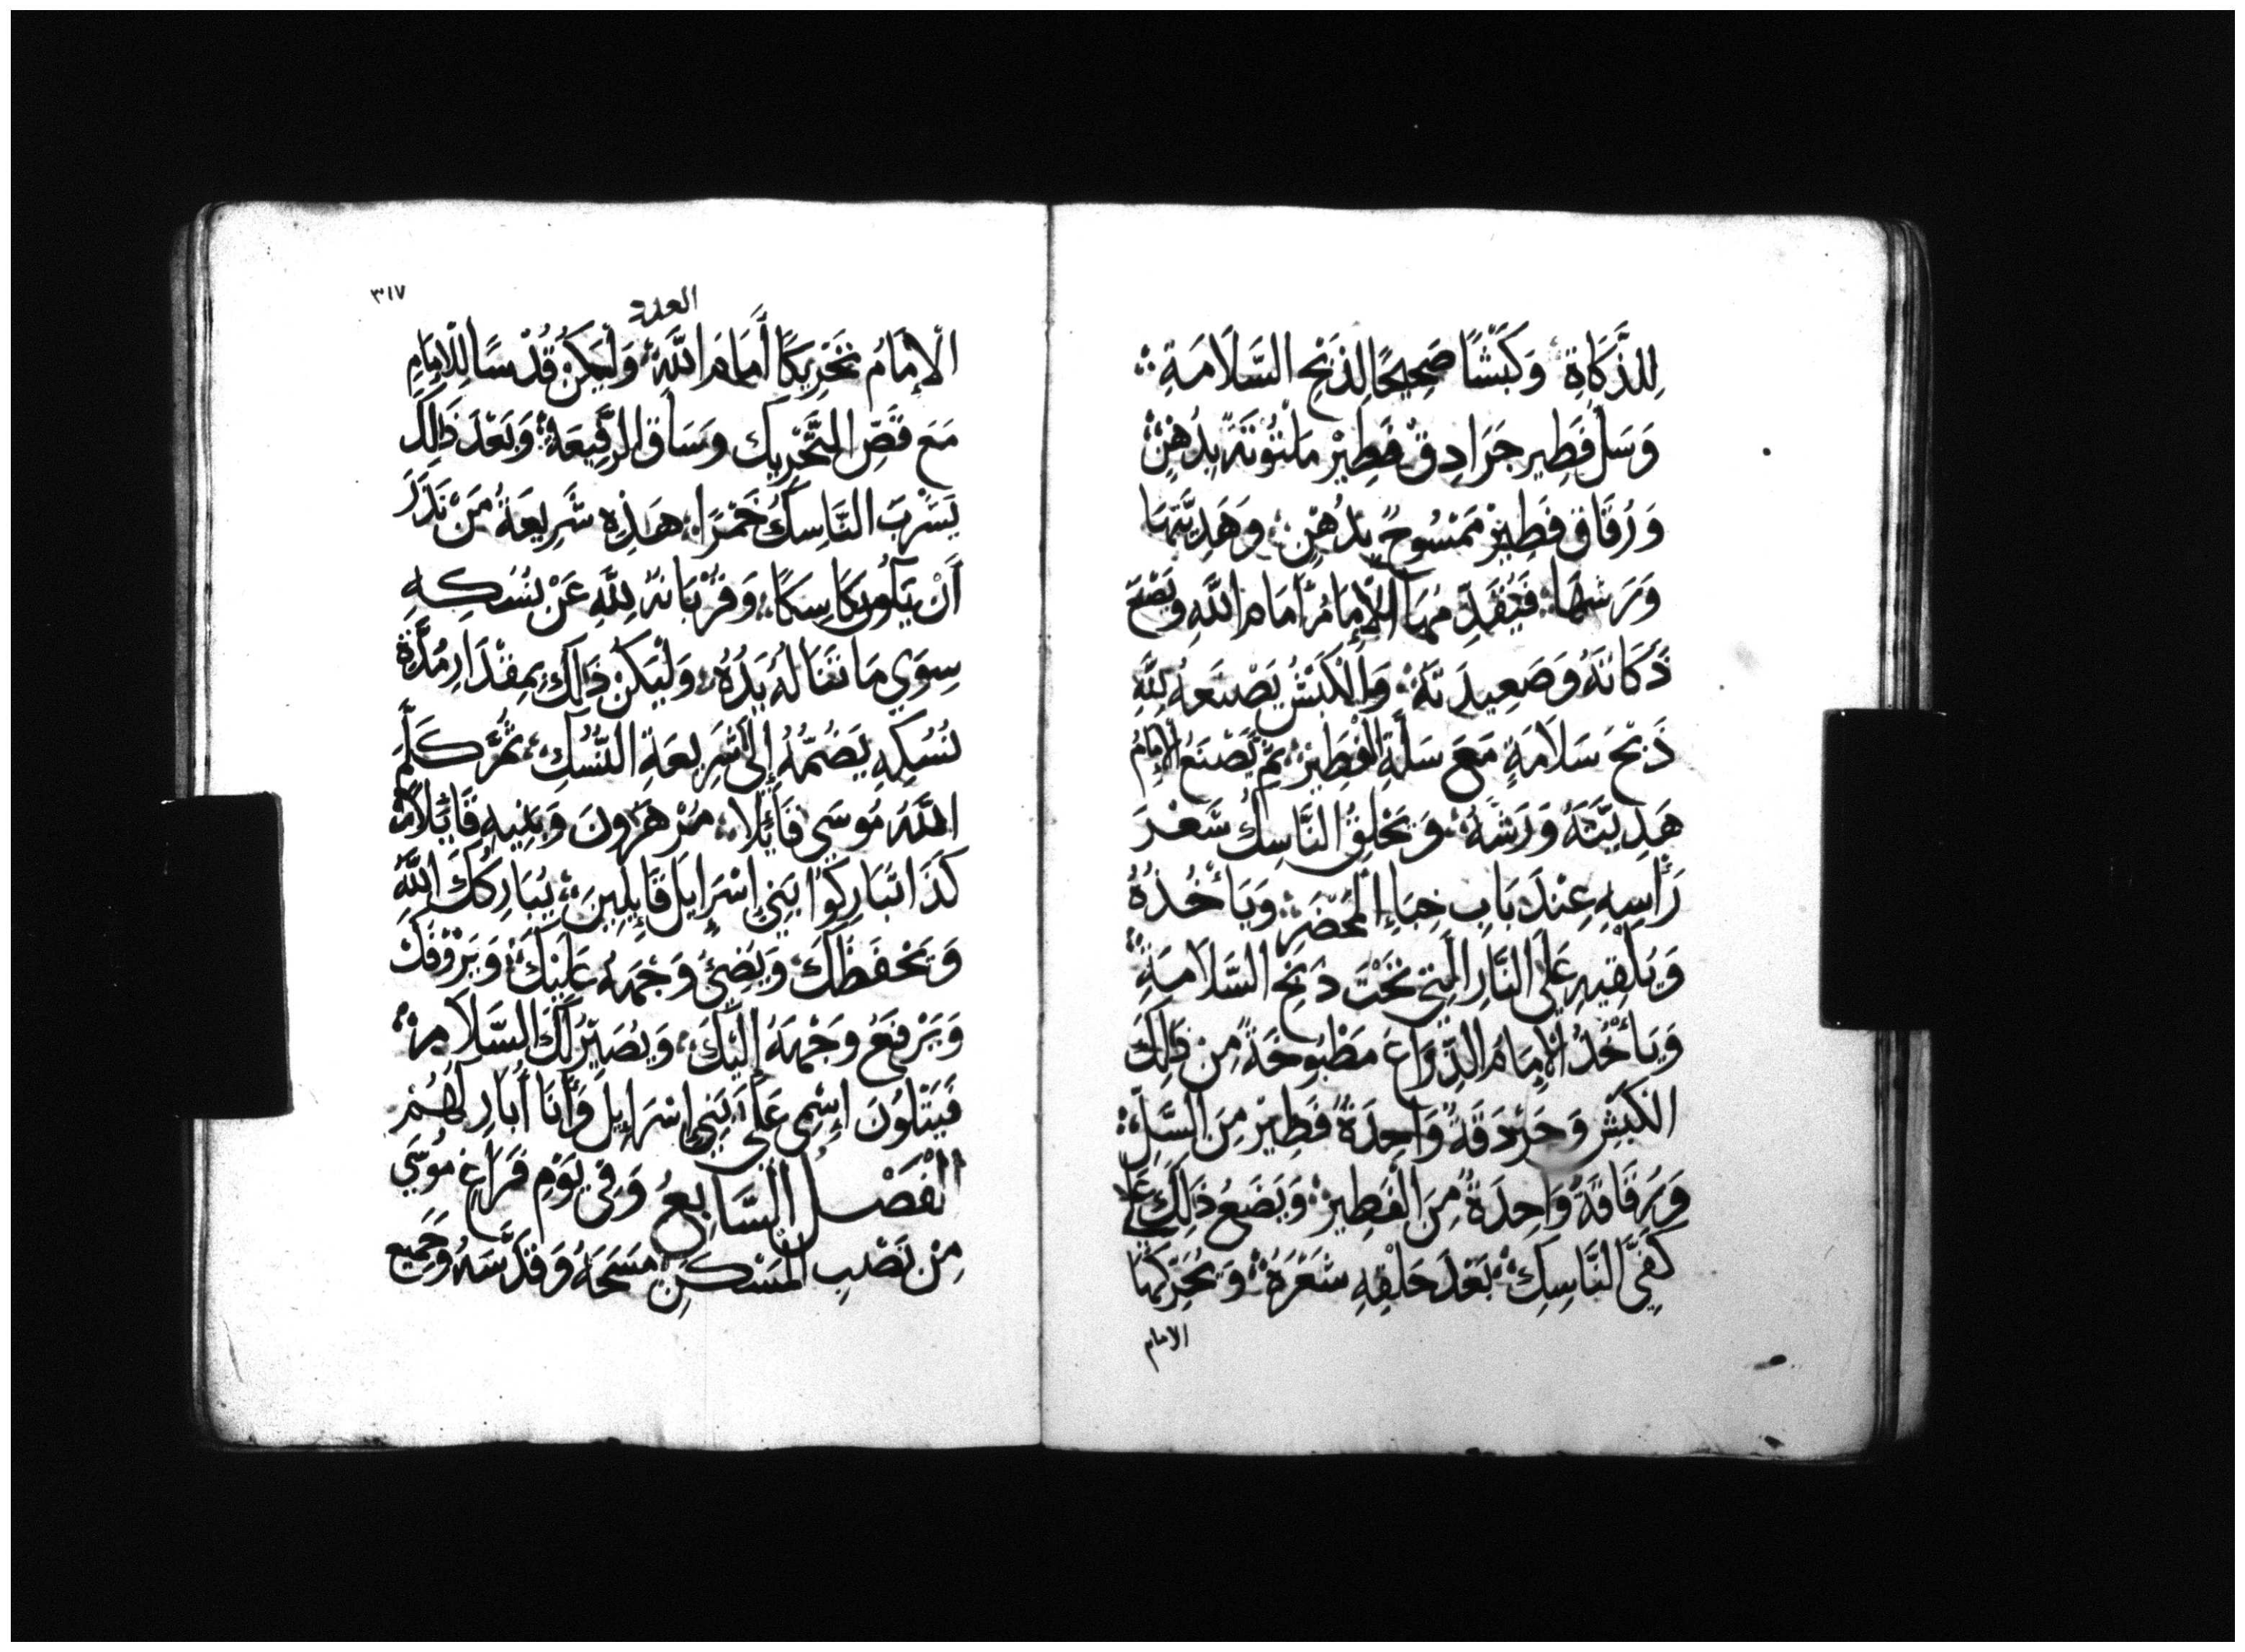 لِلذَّكَاةِ ۞ وَكَبْشًا صَحِيحًا لِذَبْحِ السَّلَامَةِ ۞
وَسَلَّ فَطِيرٍ جَرَادِقَ فَطِيرٍ مَلْتُوتَةً بِدُهْنٍ ۞
وَرُقَاقَ فَطِيرٍ مَمْسُوحٍ بِدُهْنٍ ۞ وَهَدِيَّتَهَا
وَرَشَّهَا ۞ فَيُقَدِّمُهَا الْإِمَامُ أَمَامَ اللَّهِ وَيَصْنَعُ
ذَكَاتَهُ وَصَعِيدَتَهُ ۞ وَالْكَبْشُ يَصْنَعُهُ لِلَّهِ
ذَبْحَ سَلَامَةٍ مَعَ سَلَّةِ الْفَطِيرِ ۞ ثُمَّ يَصْنَعُ الْإِمَامُ
هَدِيَّتَهُ وَرَشَّهُ ۞ وَيَحْلِقُ النَّاسِكُ شَعْرَ
رَأْسِهِ عِنْدَ بَابِ خِبَاءِ الْمَحْضَرِ ۞ وَيَأْخُذُهُ
وَيُلْقِيهِ عَلَى النَّارِ الَّتِي تَحْتَ ذَبْحِ السَّلَامَةِ ۞
وَيَأْخُذُ الْإِمَامُ الذِّرَاعَ مَطْبُوخَةً مِنْ ذَلِكَ
الْكَبْشِ وَجَرْدَقَةً وَاحِدَةً فَطِيرٍ مِنَ السَّلِّ ۞
وَرُقَاقَةً وَاحِدَةً مِنَ الْفَطِيرِ ۞ وَيَضَعُ ذَلِكَ عَلَى
كَفَّيِ النَّاسِكِ ۞ بَعْدَ حَلْقِهِ شَعْرَهُ ۞ وَيُحَرِّكُهَا
الامام
٣١٧
العدد
الْإِمَامُ تَحْرِيكًا أَمَامَ اللَّهِ ۞ وَلْيَكُنْ قُدْسًا لِلْإِمَامِ
مَعَ قَصِّ التَّحْرِيكِ وَسَاقِ الرَّفِيعَةِ ۞ وَبَعْدَ ذَلِكَ
يَشْرَبُ النَّاسِكُ خَمْرًا ۞ هَذِهِ شَرِيعَةُ مَنْ نَذَرَ
أَنْ يَكُونَ نَاسِكًا ۞ وَقُرْبَانُهُ لِلَّهِ عَنْ نُسُكِهِ
سِوَى مَا تَنَالُهُ يَدُهُ ۞ وَلْيَكُنْ ذَلِكَ بِمِقْدَارِ مُدَّةِ
نُسُكِهِ يَضُمُّهُ إِلَى شَرِيعَةِ النُّسُكِ ۞ ثُمَّ كَلَّمَ
اللَّهُ مُوسَى قَائِلًا ۞ مُرْ هَرُونَ وَبَنِيهِ قَائِلًا
كَذَا تُبَارِكُوا بَنِي إِسْرَايِلَ قَايِلِينَ ۞ يُبَارِكُكَ اللَّهُ
وَيَحْفَظُكَ ۞ وَيُضِئُ وَجْهَهُ عَلَيْكَ ۞ وَيَرْؤُفُكَ
وَيَرْفَعُ وَجْهَهُ إِلَيْكَ ۞ وَيُصَيِّرُ لَكَ السَّلَامَ ۞
فَيَتْلُونَ اسْمِي عَلَى بَنِي إِسْرَايِلَ وَأَنَا أُبَارِكُهُمْ
الْفَصْلُ السَّابِعُ وَفِي يَوْمِ فَرَاغِ مُوسَى
مِنْ نَصْبِ الْمَسْكَنِ مَسَحَهُ وَقَدَّسَهُ وَجَمِيعَ